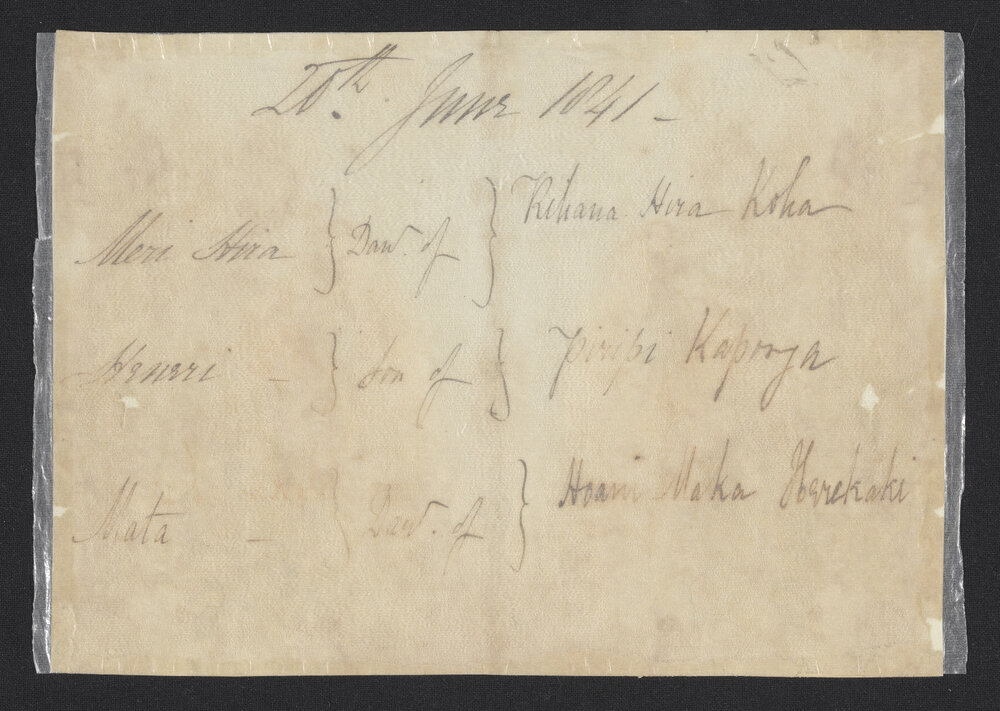 20th. June 1841 -
Meri Hira } Daur. of } Kihana Hira Koha
Heneri - } Son of } Piripi Kaponga
Mata - { Daur. of } Hoani Maka Herekaki